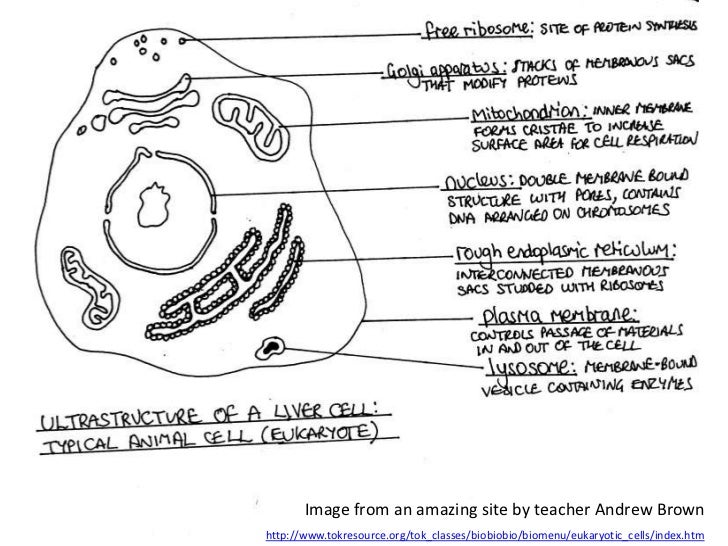 free ribosome: SITE OF PROTEIN SYNTHESIS
Golgi apparatus: STACKS OF MEMBRANOUS SACS
THAT MODIFY PROTEINS
Mitochondrion: INNER MEMBRANE
FORMS CRISTAE TO INCREASE
SURFACE AREA FOR CELL RESPIRATION
nucleus: DOUBLE MEMBRANE BOUND
STRUCTURE WITH PORES, CONTAINS
DNA ARRANGED ON CHROMOSOMES
rough endoplasmic reticulum:
INTERCONNECTED MEMBRANOUS
SACS STUDDED WITH RIBOSOMES
plasma membrane:
CONTROLS PASSAGE OF MATERIALS
IN AND OUT OF THE CELL
lysosome: MEMBRANE-BOUND
VESICLE CONTAINING ENZYMES
ULTRASTRUCTURE OF A LIVER CELL:
TYPICAL ANIMAL CELL (EUKARYOTE)
Image from an amazing site by teacher Andrew Brown
http://www.tokresource.org/tok_classes/biobiobio/biomenu/eukaryotic_cells/index.htm